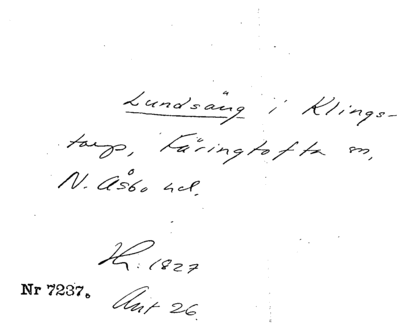 Lundsäng i Klings-
torp, Färingtofta sn,
N. Åsbo hd.
Hr: 1827
Nr 7237.
Akt 26.